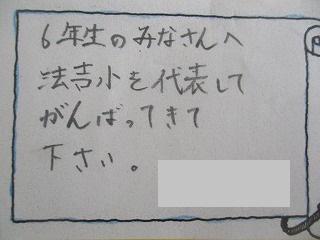 6年生のみなさんへ
法吉小を代表して
がんばってきて
下さい。